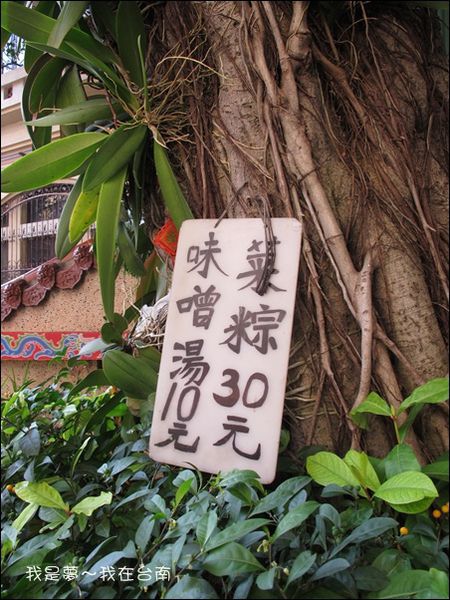 菜粽30元
味噌湯10元
我是夢～我在台南